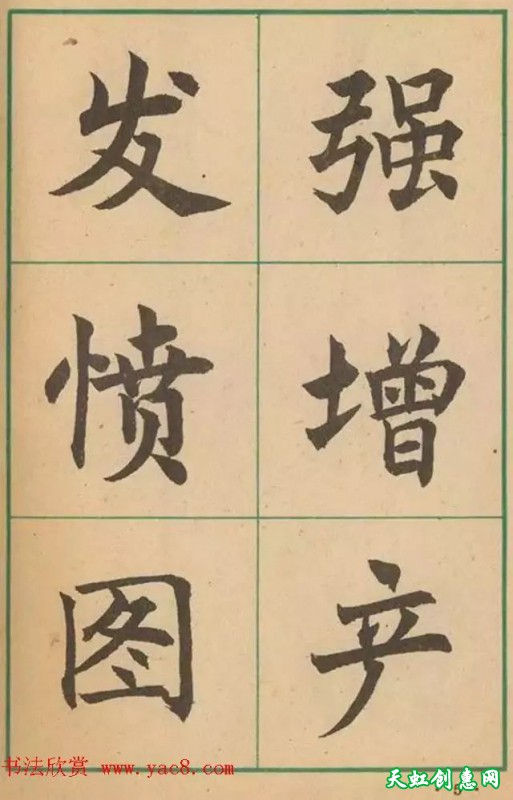 发愤图
强增产
书法欣赏 www.yac8.com
天虹创惠网
5